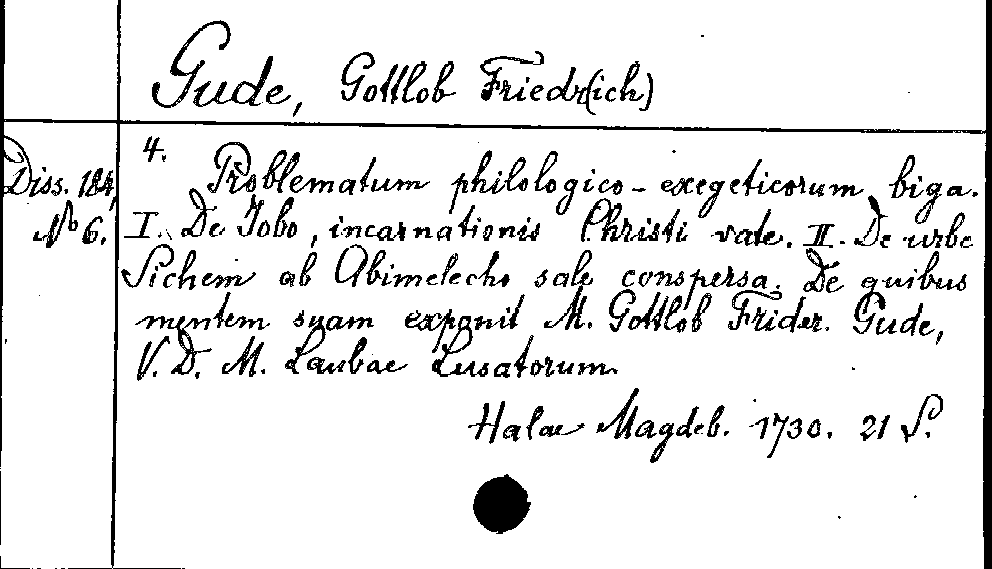 Gude, Gottlob Friedr(ich)
4.
Diss. 184,
No 6.
Problematum philologico-exegeticorum biga.
I. De Jobo, incarnationis Christi vate. II. De urbe
Sichem ab Abimelecho sale conspersa. De quibus
mentem suam exponit M. Gottlob Frider. Gude,
V. D. M. Laubae Lusatorum.
Halae Magdeb. 1730. 21 S.